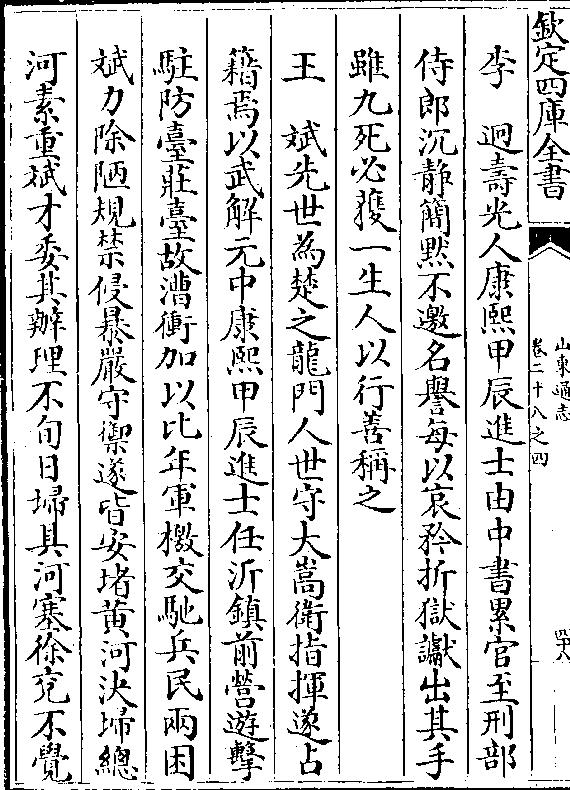 欽定四庫全書
山東通志
卷二十八之四
四十八
李　迥壽光人康熙甲辰進士由中書累官至刑部
侍郎沉静簡黙不邀名譽每以哀矜折獄讞出其手
雖九死必獲一生人以行善稱之
王　斌先世為楚之龍門人世守大嵩衛指揮遂占
籍焉以武解元中康熙甲辰進士任沂鎮前營遊擊
駐防臺莊臺故漕衝加以比年軍檄交馳兵民兩困
斌力除陋規禁侵暴嚴守禦遂皆安堵黄河決埽總
河素重斌才委其辦理不旬日埽具河塞徐兗不覺